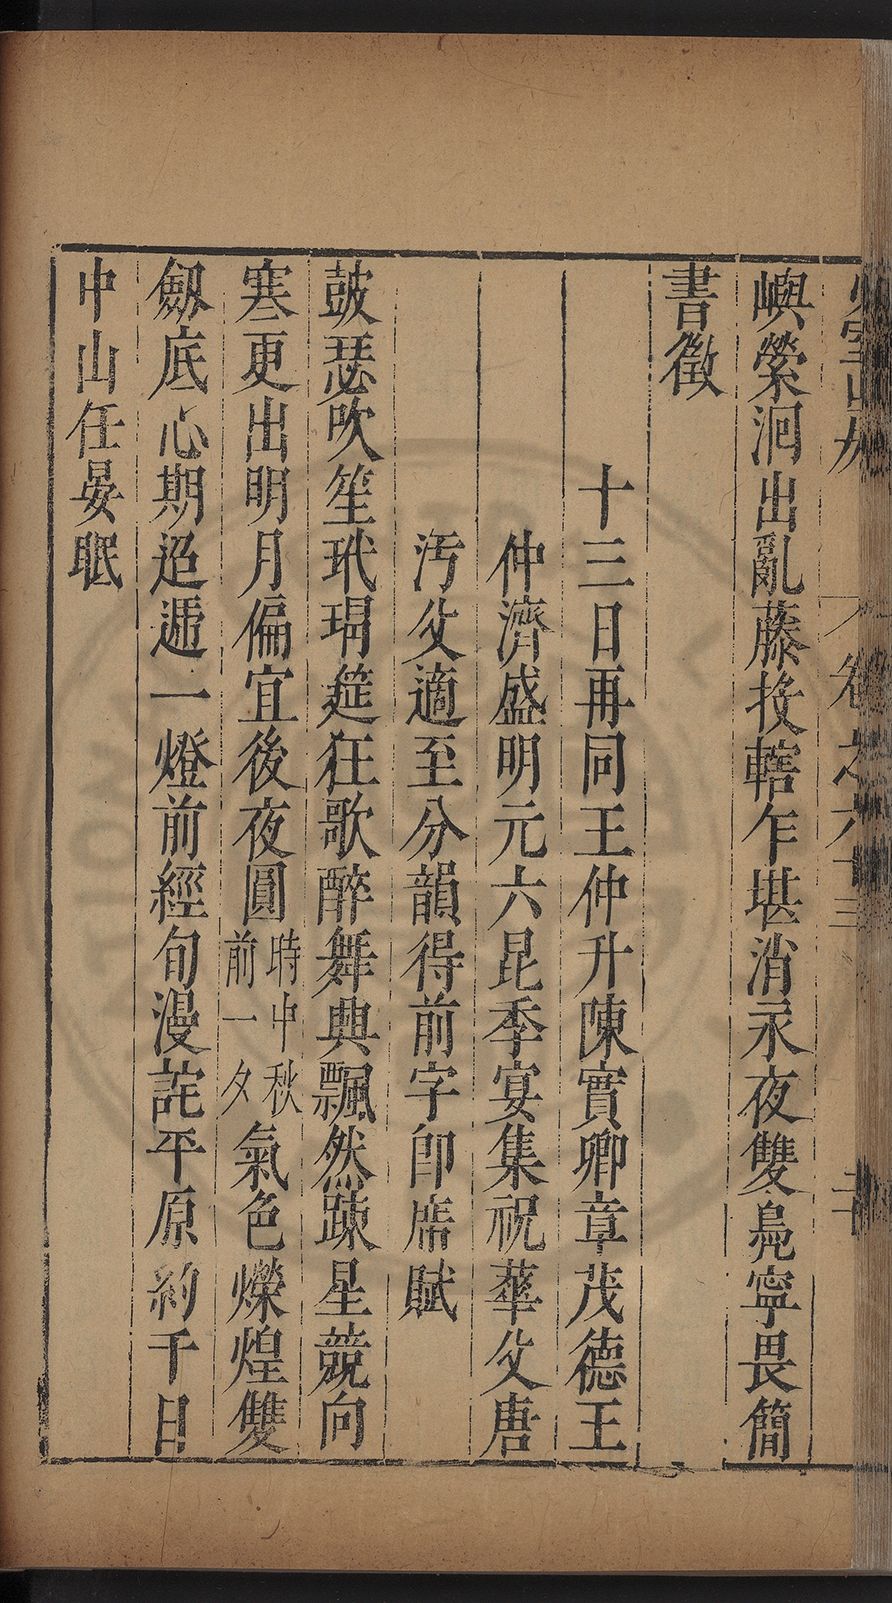 卷之六十三
嶼縈洄出亂藤投轄乍堪消永夜雙鳧寧畏簡
書徵
十三日再同王仲升陳實卿章茂德王
仲濟盛明元六昆季宴集祝華父唐
汚父適至分韻得前字即席賦
鼓瑟吹笙玳瑁筵狂歌醉舞興飄然疎星競向
寒更出明月偏宜後夜圓時中秋前一夕氣色爍煌雙
劔底心期迢遞一燈前經旬漫詫平原約千日
中山任晏眠